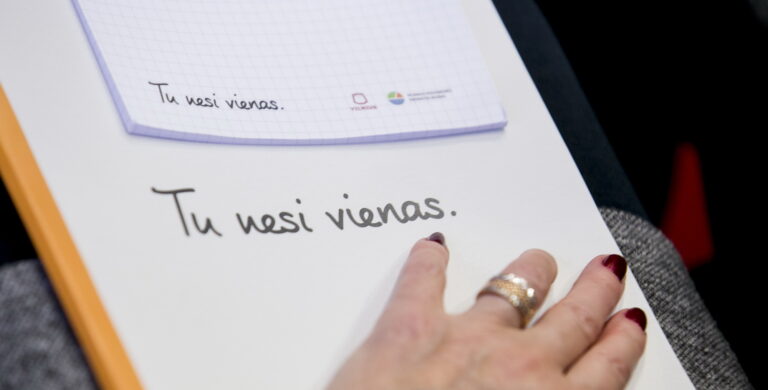 Tu nesi vienas.
VILNIUS
Tu nesi vienas.